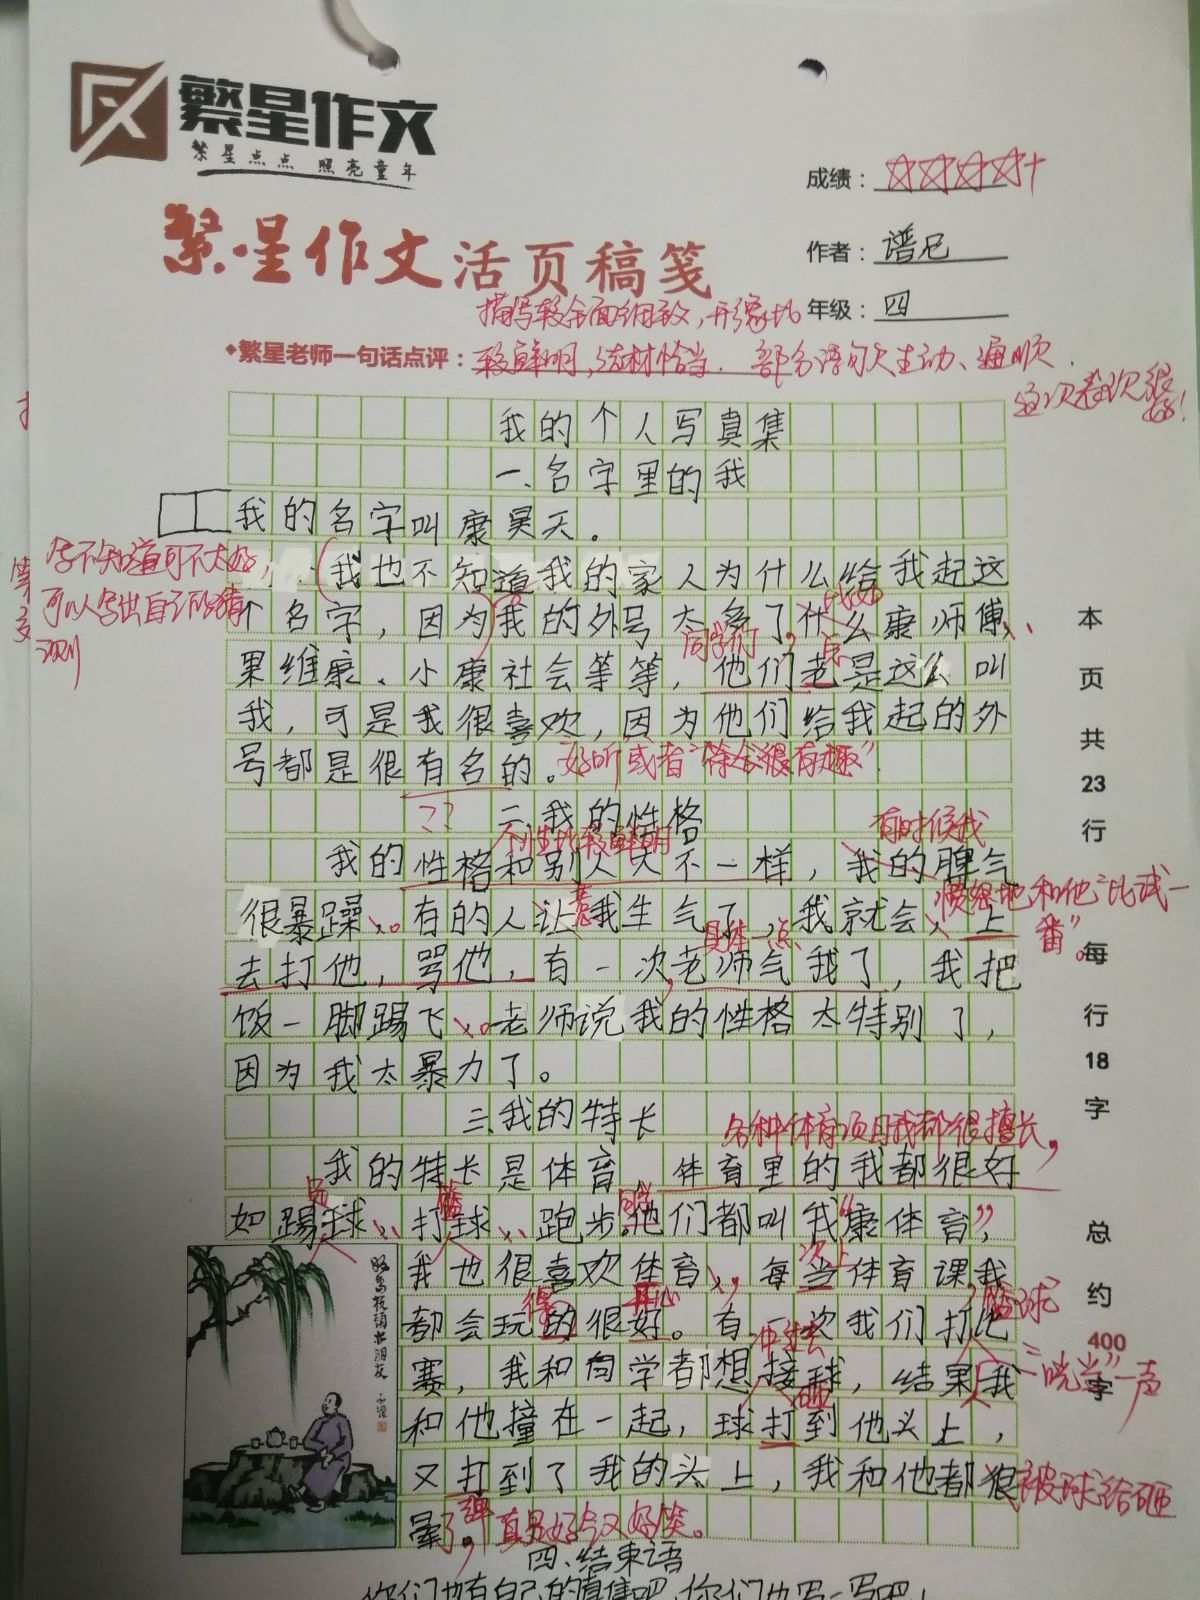 繁星作文
繁星点点 照亮童年
成绩：
繁星作文活页稿笺
作者：谱尼
年级：四
描写较全面细致，形象比
•繁星老师一句话点评：较鲜明，选材恰当．部分语句欠生动、通顺．
这次表现很好！
我的个人写真集
一、名字里的我
我的名字叫康昊天。
写不知道可不太好，
可以写出自己的猜
测
我也不知道我的家人为什么给我起这
个名字，因为我的外号太多了什么康师傅、
比如
果维康、小康社会等等，他们老是这么叫
同学们，总
我，可是我很喜欢，因为他们给我起的外
号都是很有名的。
好听或者“综合很有趣”
？？
二、我的性格
个性比较鲜明
有时候我
我的性格和别人大不一样，我的脾气
很暴躁。有的人让我生气了，我就会上
惹
愤怒地和他“比试一
番”。
具体一点
去打他，骂他，有一次老师气我了，我把
饭一脚踢飞。老师说我的性格太特别了，
因为我太暴力了。
三、我的特长
各种体育项目我都很擅长，
我的特长是体育，体育里的我都很好
如踢球、打球、跑步。他们都叫我“康体育”，
足
篮
同学
我也很喜欢体育，每当体育课我
次上
都会玩的很好。有一次我们打比
得
开心
篮球
赛，我和同学都想接球，结果我
“咣当”一声
和他撞在一起，球打到他头上，
砸
又打到了我的头上，我和他都
弹
被球给砸
晕了。真是好气又好笑。
四、结束语
你们也有自己的真集吧，你们也写一写吧！
本页共23行每行18字总约400字